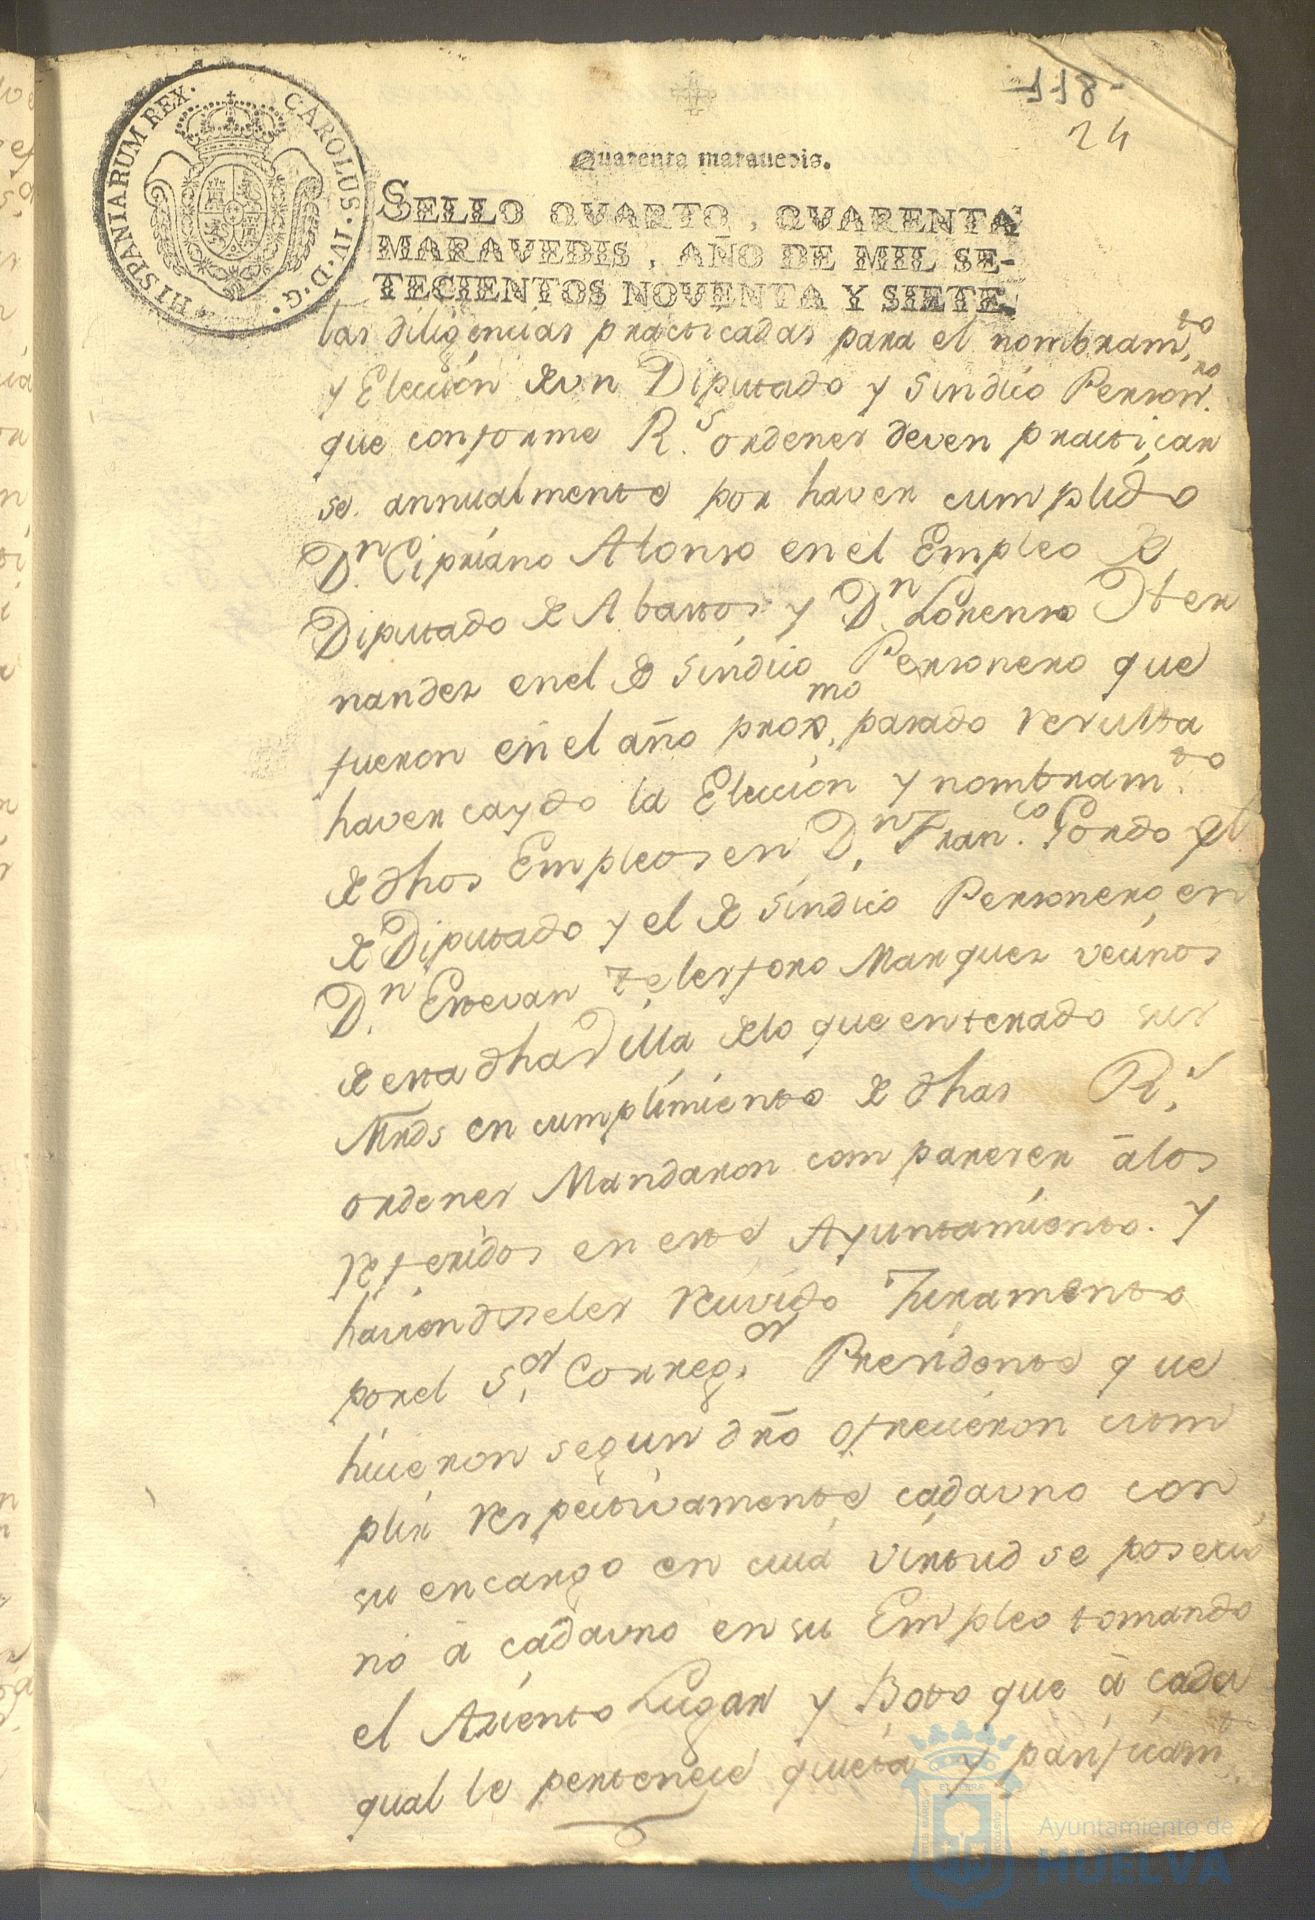 118-
24
HISPANIARUM REX. CAROLUS. IV. D. G.
Quarenta maravedis.
SELLO QVARTO, QVARENTA
MARAVEDIS, AÑO DE MIL SE-
TECIENTOS NOVENTA Y SIETE.
las diligencias practicadas para el nombram.to
y Elección de un Diputado y Sindico Person.ro
que conforme R.s ordenes deven practicar
se annualmente por haver cumplido
D.n Cipriano Alonso en el Empleo de
Diputado de Abastos y D.n Lorenso Her
nandes en el de Sindico Personero que
fueron en el año prox.mo pasado resulta
haver caydo la Elección y nombram.to
de dhos Empleos en D.n Fran.co Gordo el
de Diputado y el de Sindico Personero en
D.n Estevan Telesforo Marques vecinos
de esta dha Villa de lo que enterado sus
Mrds en cumplimiento de dhas R.s
ordenes Mandaron compareser á los
referidos en este Ayuntamiento. y
haviendoseles recivido Juramento
por el S.or Correg.or Presidente que
hicieron segun dro ofrecieron cum
plir respectivamente cada uno con
su encargo en cuia virtud se poseció
nó á cada uno en su Empleo tomando
el Asiento Lugar y Boto que á cada
qual le pertenece quieta y pasificam.te
Ayuntamiento de
HUELVA